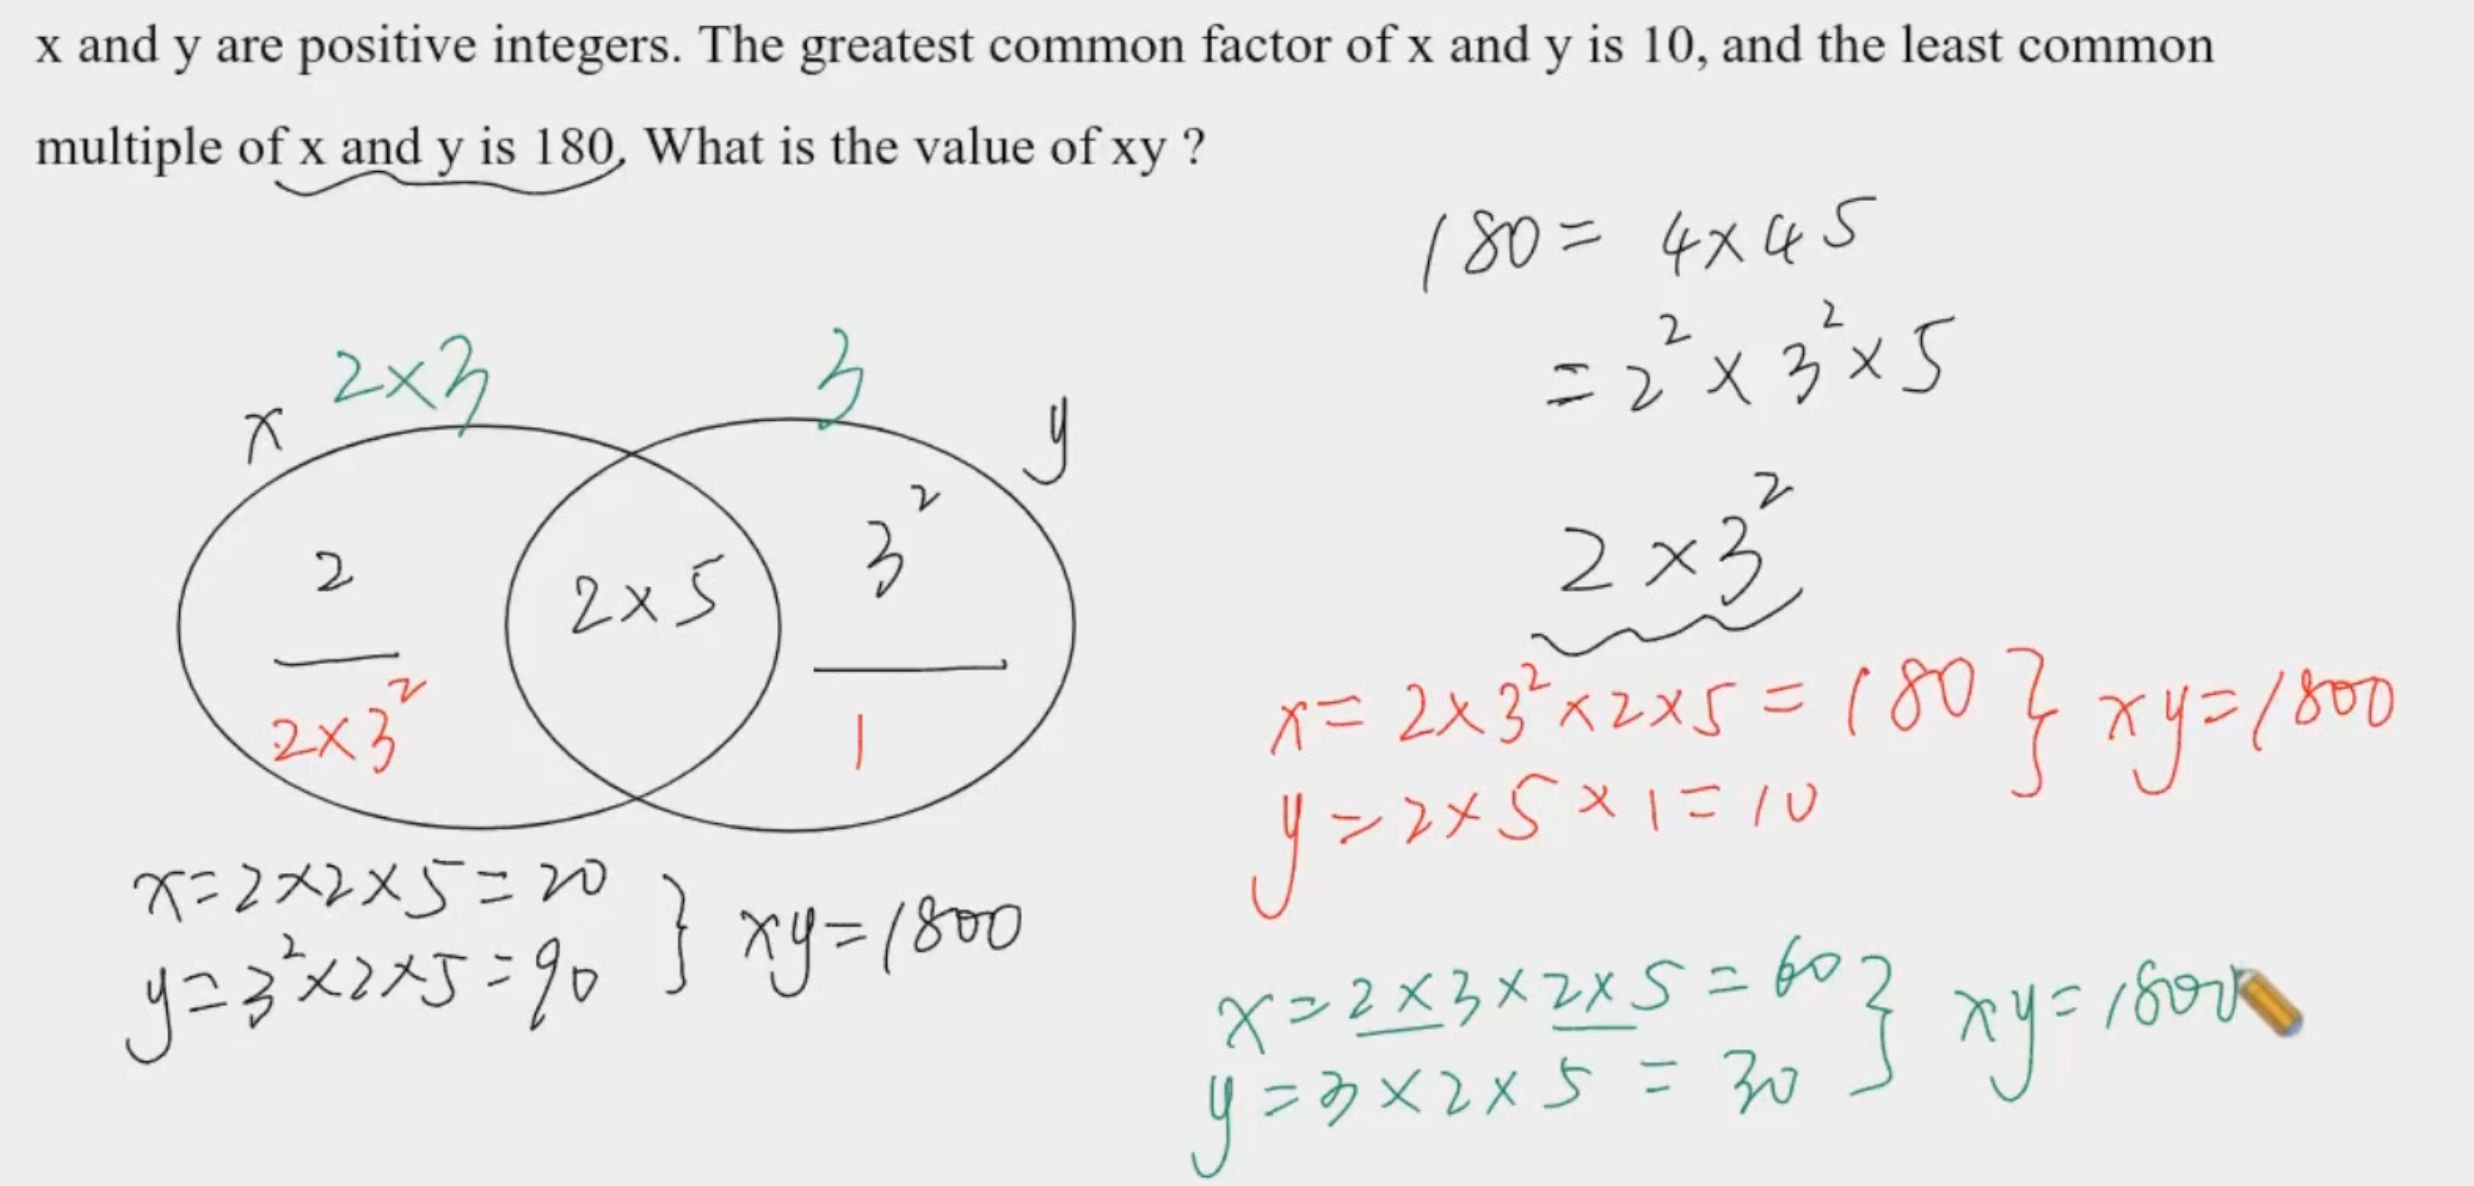 x and y are positive integers. The greatest common factor of x and y is 10, and the least common
multiple of x and y is 180. What is the value of xy ?
180 = 4×45
= 2² × 3² × 5
2 × 3²
x
2×3
3
y
2
2×5
3²
2×3²
1
x = 2×3²×2×5 = 180 } xy = 1800
y = 2×5×1 = 10
x = 2×2×5 = 20
y = 3²×2×5 = 90 } xy = 1800
x = 2×3×2×5 = 60
y = 3×2×5 = 30 } xy = 1800